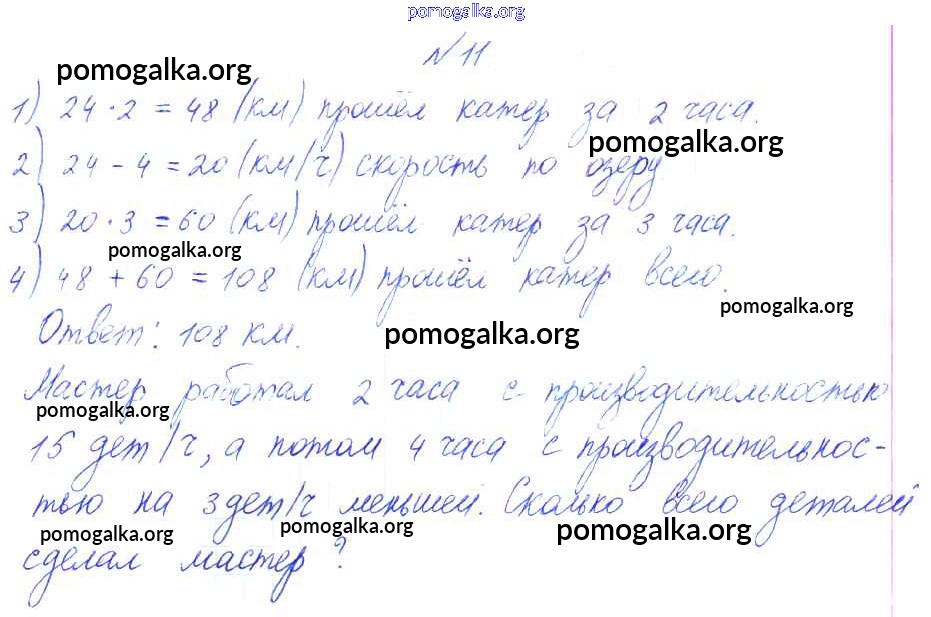 pomogalka.org
N 11
pomogalka.org
1) 24 · 2 = 48 (км) прошёл катер за 2 часа.
pomogalka.org
2) 24 - 4 = 20 (км/ч) скорость по озеру
3) 20 · 3 = 60 (км) прошёл катер за 3 часа.
pomogalka.org
4) 48 + 60 = 108 (км) прошёл катер всего.
pomogalka.org
Ответ: 108 км.
pomogalka.org
Мастер работал 2 часа с производительностью
pomogalka.org
15 дет/ч, а потом 4 часа с производительнос-
тью на 3 дет/ч меньшей. Сколько всего деталей
pomogalka.org pomogalka.org pomogalka.org
сделал мастер?